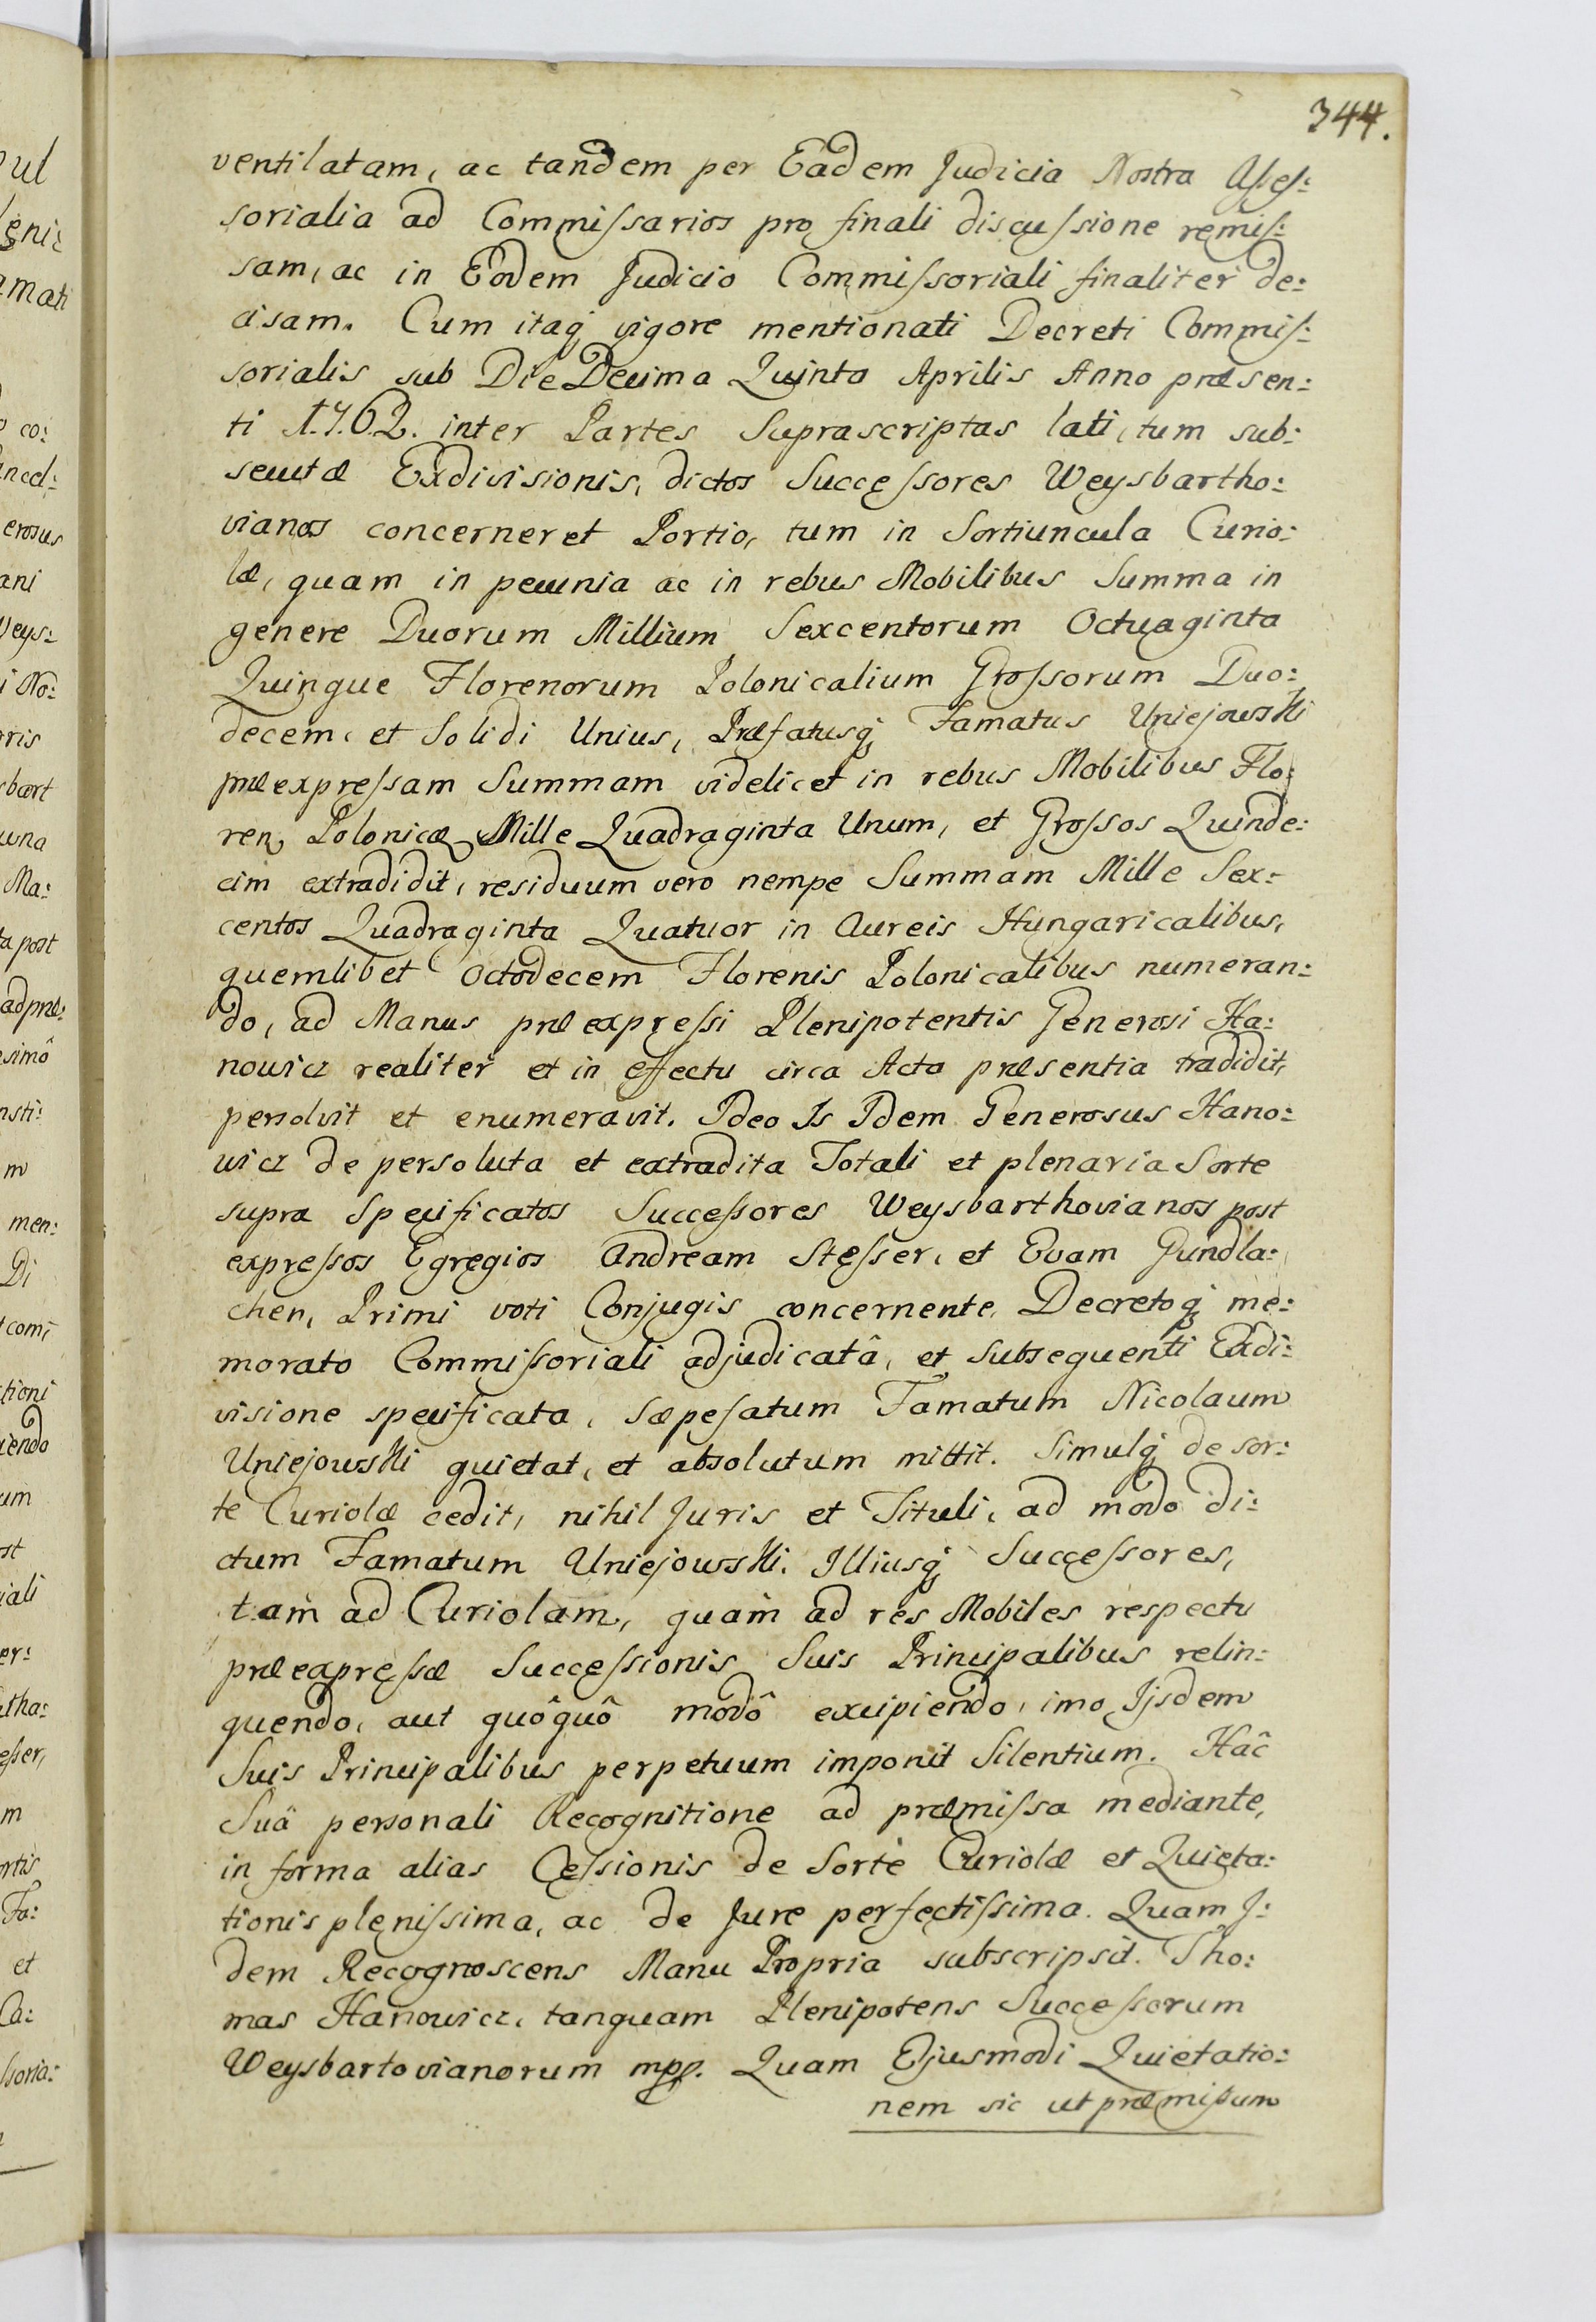 344.
ventilatam, ac tandem per Eadem Judicia Nostra Asses:
sorialia ad Commissarios pro finali discussione remis:
sam, ac in Eodem Judicio Commissoriali finaliter de:
cisam. Cum itaq3 vigore mentionati Decreti Commis:
sorialis sub Die Decima Quinta Aprilis Anno præsen:
ti 1762. inter Partes Suprascriptas lati, tum sub:
secutæ Exdivisionis, dictos Successores Weysbartho:
vianos concerneret Portio, tum in Sortiuncula Curio:
læ, quam in pecunia ac in rebus Mobilibus Summa in
genere Duorum Millium Sexcentorum Octuaginta
Quinque Florenorum Polonicalium Grossorum Duo:
decem, et Solidi Unius, Præfatusq3 Famatus Uniejowski
præexpressam Summam videlicet in rebus Mobilibus Flo:
ren. Polonic. Mille Quadraginta Unum, et Grossos Quinde:
cim extradidit, residuum vero nempe Summam Mille Sex:
centos Quadraginta Quatuor in Aureis Hungaricalibus,
quemlibet Octodecem Florenis Polonicalibus numeran:
do, ad Manus præexpressi Plenipotentis Generosi Ha:
nowicz realiter et in effectu circa Acta præsentia tradidit,
persolvit et enumeravit. Ideo Is Idem Generosus Hano:
wicz de persoluta et extradita Totali et plenaria Sorte
supra Specificatos Successores Weysbarthovianos post
expressos Egregios Andream Stesser, et Evam Gundla:
chen, Primi voti Conjugis concernente, Decretoq3 me:
morato Commissoriali adjudicatâ, et Subsequenti Exdi:
visione specificata, Sæpefatum Famatum Nicolaum
Uniejowski quietat, et absolutum mittit. Simulq3 de sor:
te Curiolæ cedit, nihil Juris et Tituli, ad modo di:
ctum Famatum Uniejowski. Illiusq3 Successores,
tam ad Curiolam, quam ad res Mobiles respectu
præexpressæ Successionis Suis Principalibus relin:
quendo, aut quôquô modô excipiendo, imo Ijsdem
Suis Principalibus perpetuum imponit Silentium. Hâc
Suâ personali Recognitione ad præmissa mediante,
in forma alias Cessionis de Sorte Curiolæ et Quieta:
tionis plenissima, ac de Jure perfectissima. Quam I:
dem Recognoscens Manu Propria subscripsit. Tho:
mas Hanowicz, tanquam Plenipotens Successorum
Weysbartovianorum mpp. Quam Ejusmodi Quietatio:
nem sic ut præmissum